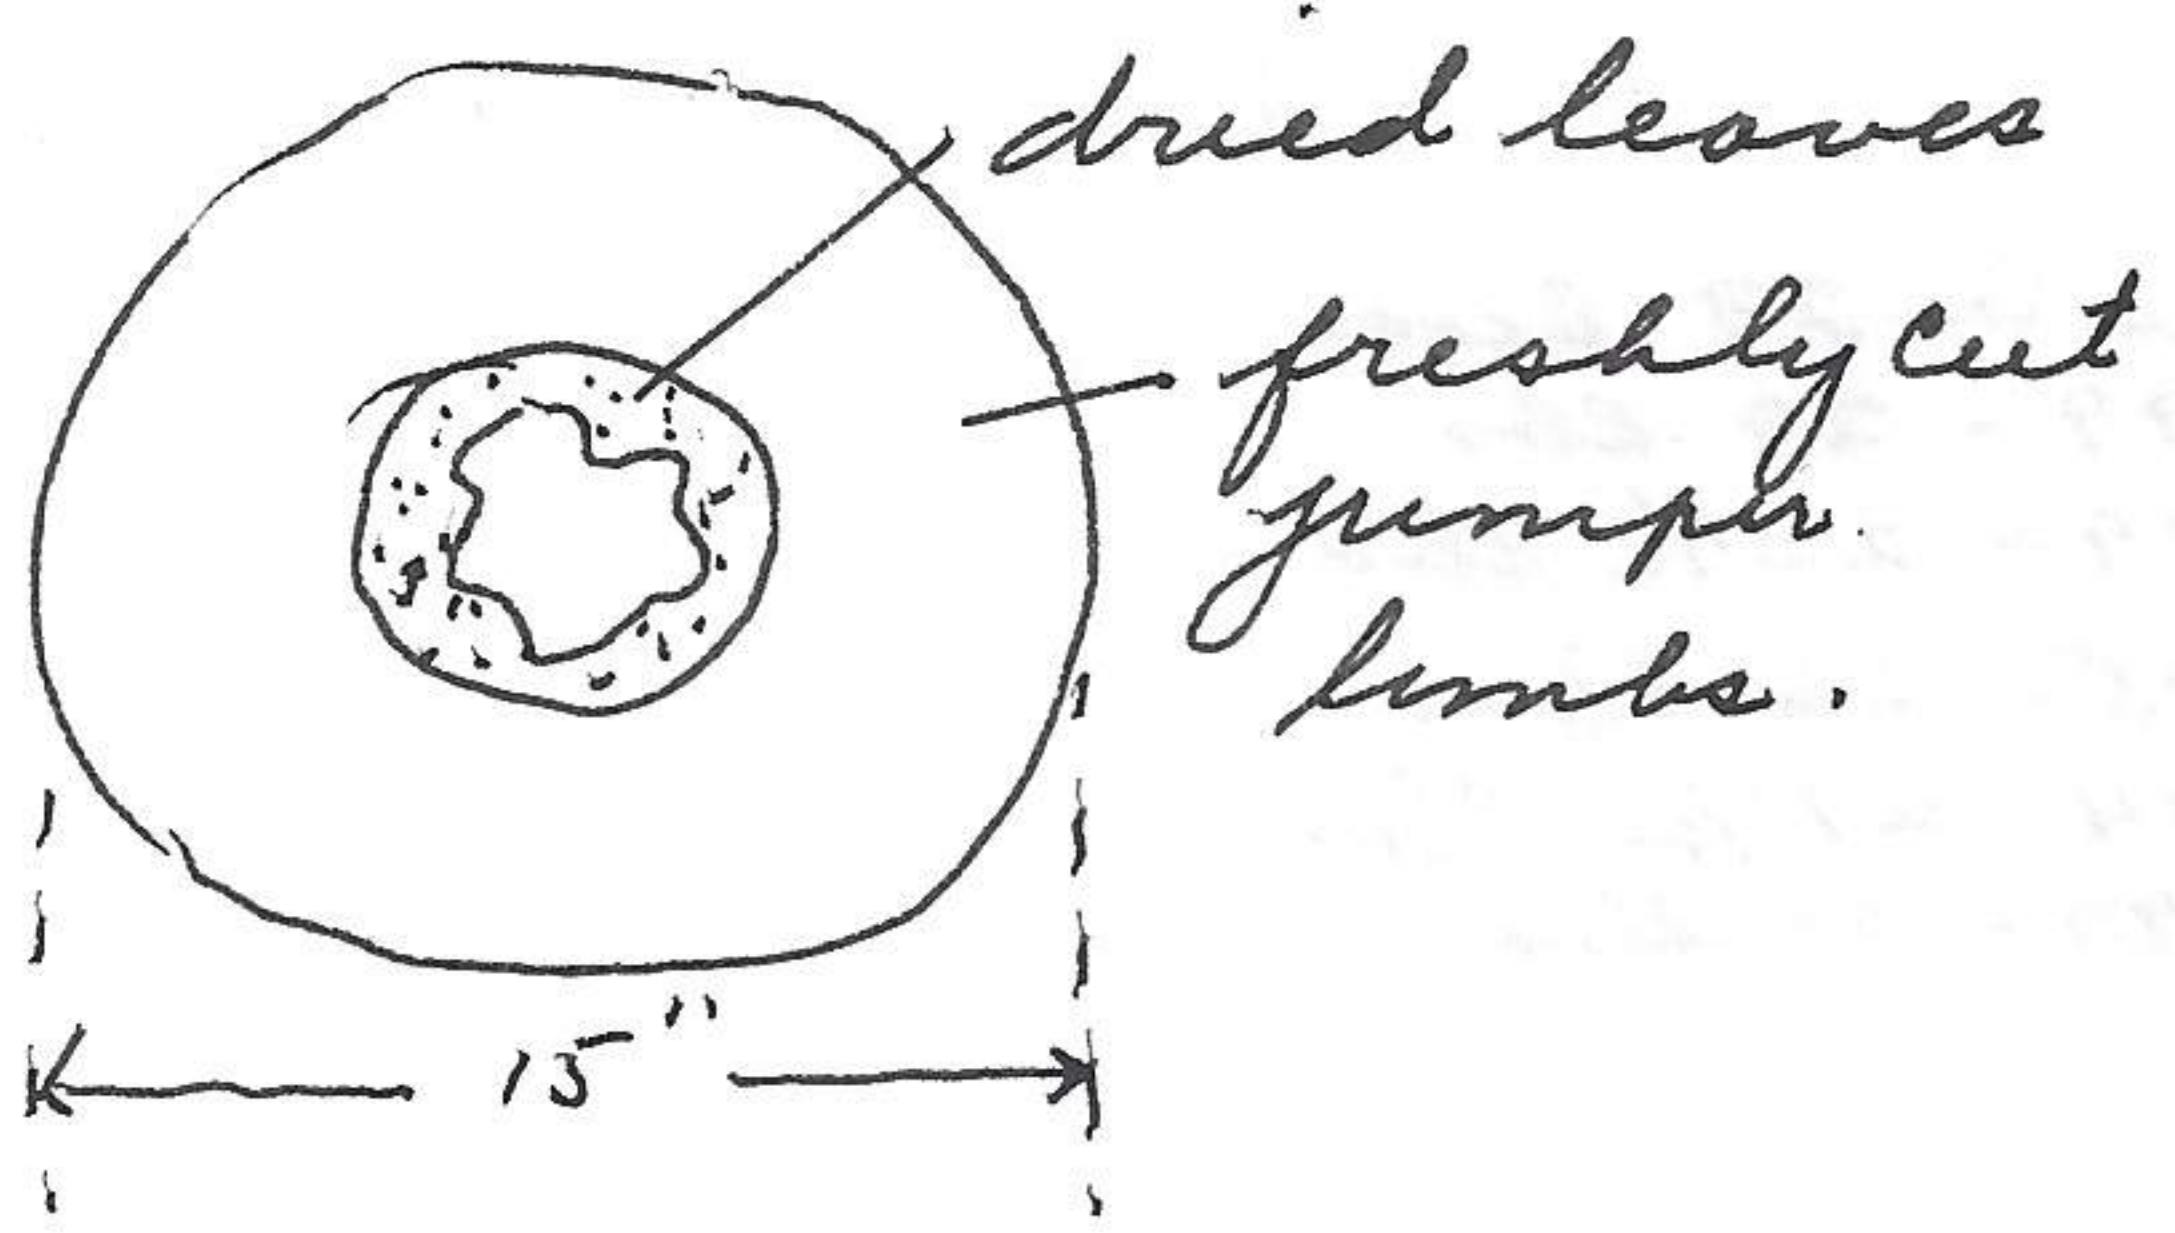 dried leaves
freshly cut
juniper
limbs.
15"